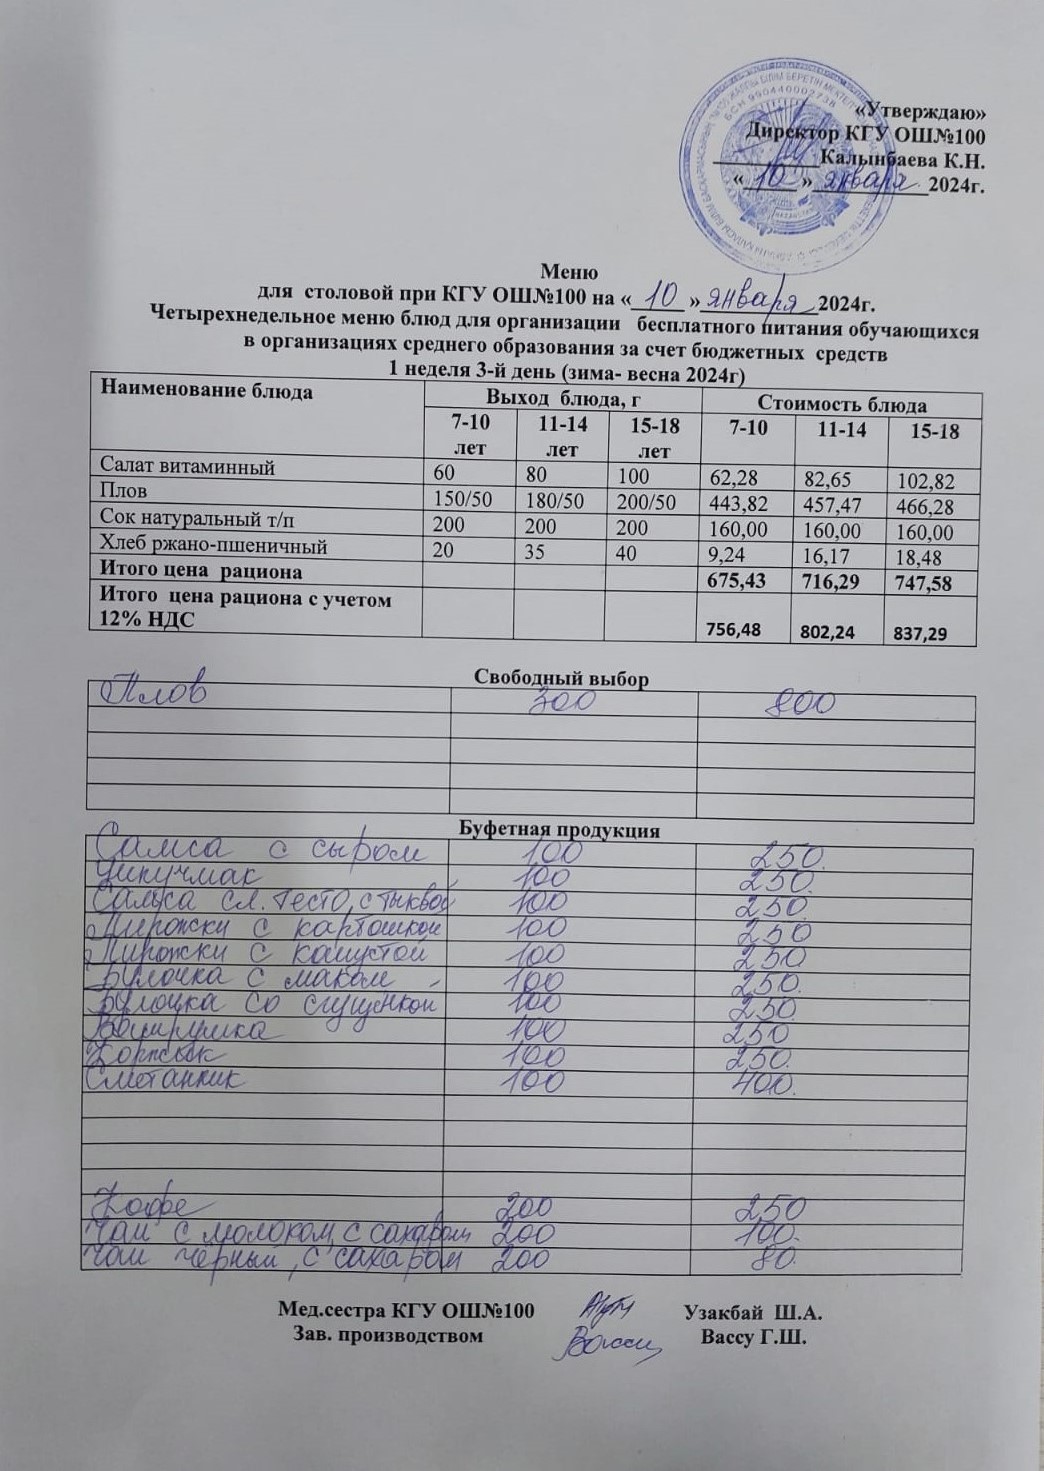 «Утверждаю»
Директор КГУ ОШ№100
__________Калынбаева К.Н.
«10» января 2024г.
БСН 990440002738
Меню
для столовой при КГУ ОШ№100 на «10» января 2024г.
Четырехнедельное меню блюд для организации бесплатного питания обучающихся
в организациях среднего образования за счет бюджетных средств
1 неделя 3-й день (зима- весна 2024г)
Наименование блюда Выход блюда, г Стоимость блюда
7-10 лет 11-14 лет 15-18 лет 7-10 11-14 15-18
Салат витаминный 60 80 100 62,28 82,65 102,82
Плов 150/50 180/50 200/50 443,82 457,47 466,28
Сок натуральный т/п 200 200 200 160,00 160,00 160,00
Хлеб ржано-пшеничный 20 35 40 9,24 16,17 18,48
Итого цена рациона 675,43 716,29 747,58
Итого цена рациона с учетом
12% НДС 756,48 802,24 837,29
Свободный выбор
Плов 300 800
Буфетная продукция
Самса с сыром 100 250.
Учпучмак 100 250.
Самса сл. тесто, с тыквой 100 250
Пирожки с картошкой 100 250
Пирожки с капустой 100 250
Булочка с маком - 100 250.
Булочка со сгущенкой 100 250.
Ватрушка 100 250
Коржик 100 250.
Сметанник 100 400.
Кофе 200 250
Чай с молоком, с сахаром 200 100.
Чай чёрный, с сахаром 200 80.
Мед.сестра КГУ ОШ№100 Узакбай Ш.А.
Зав. производством Вассу Г.Ш.